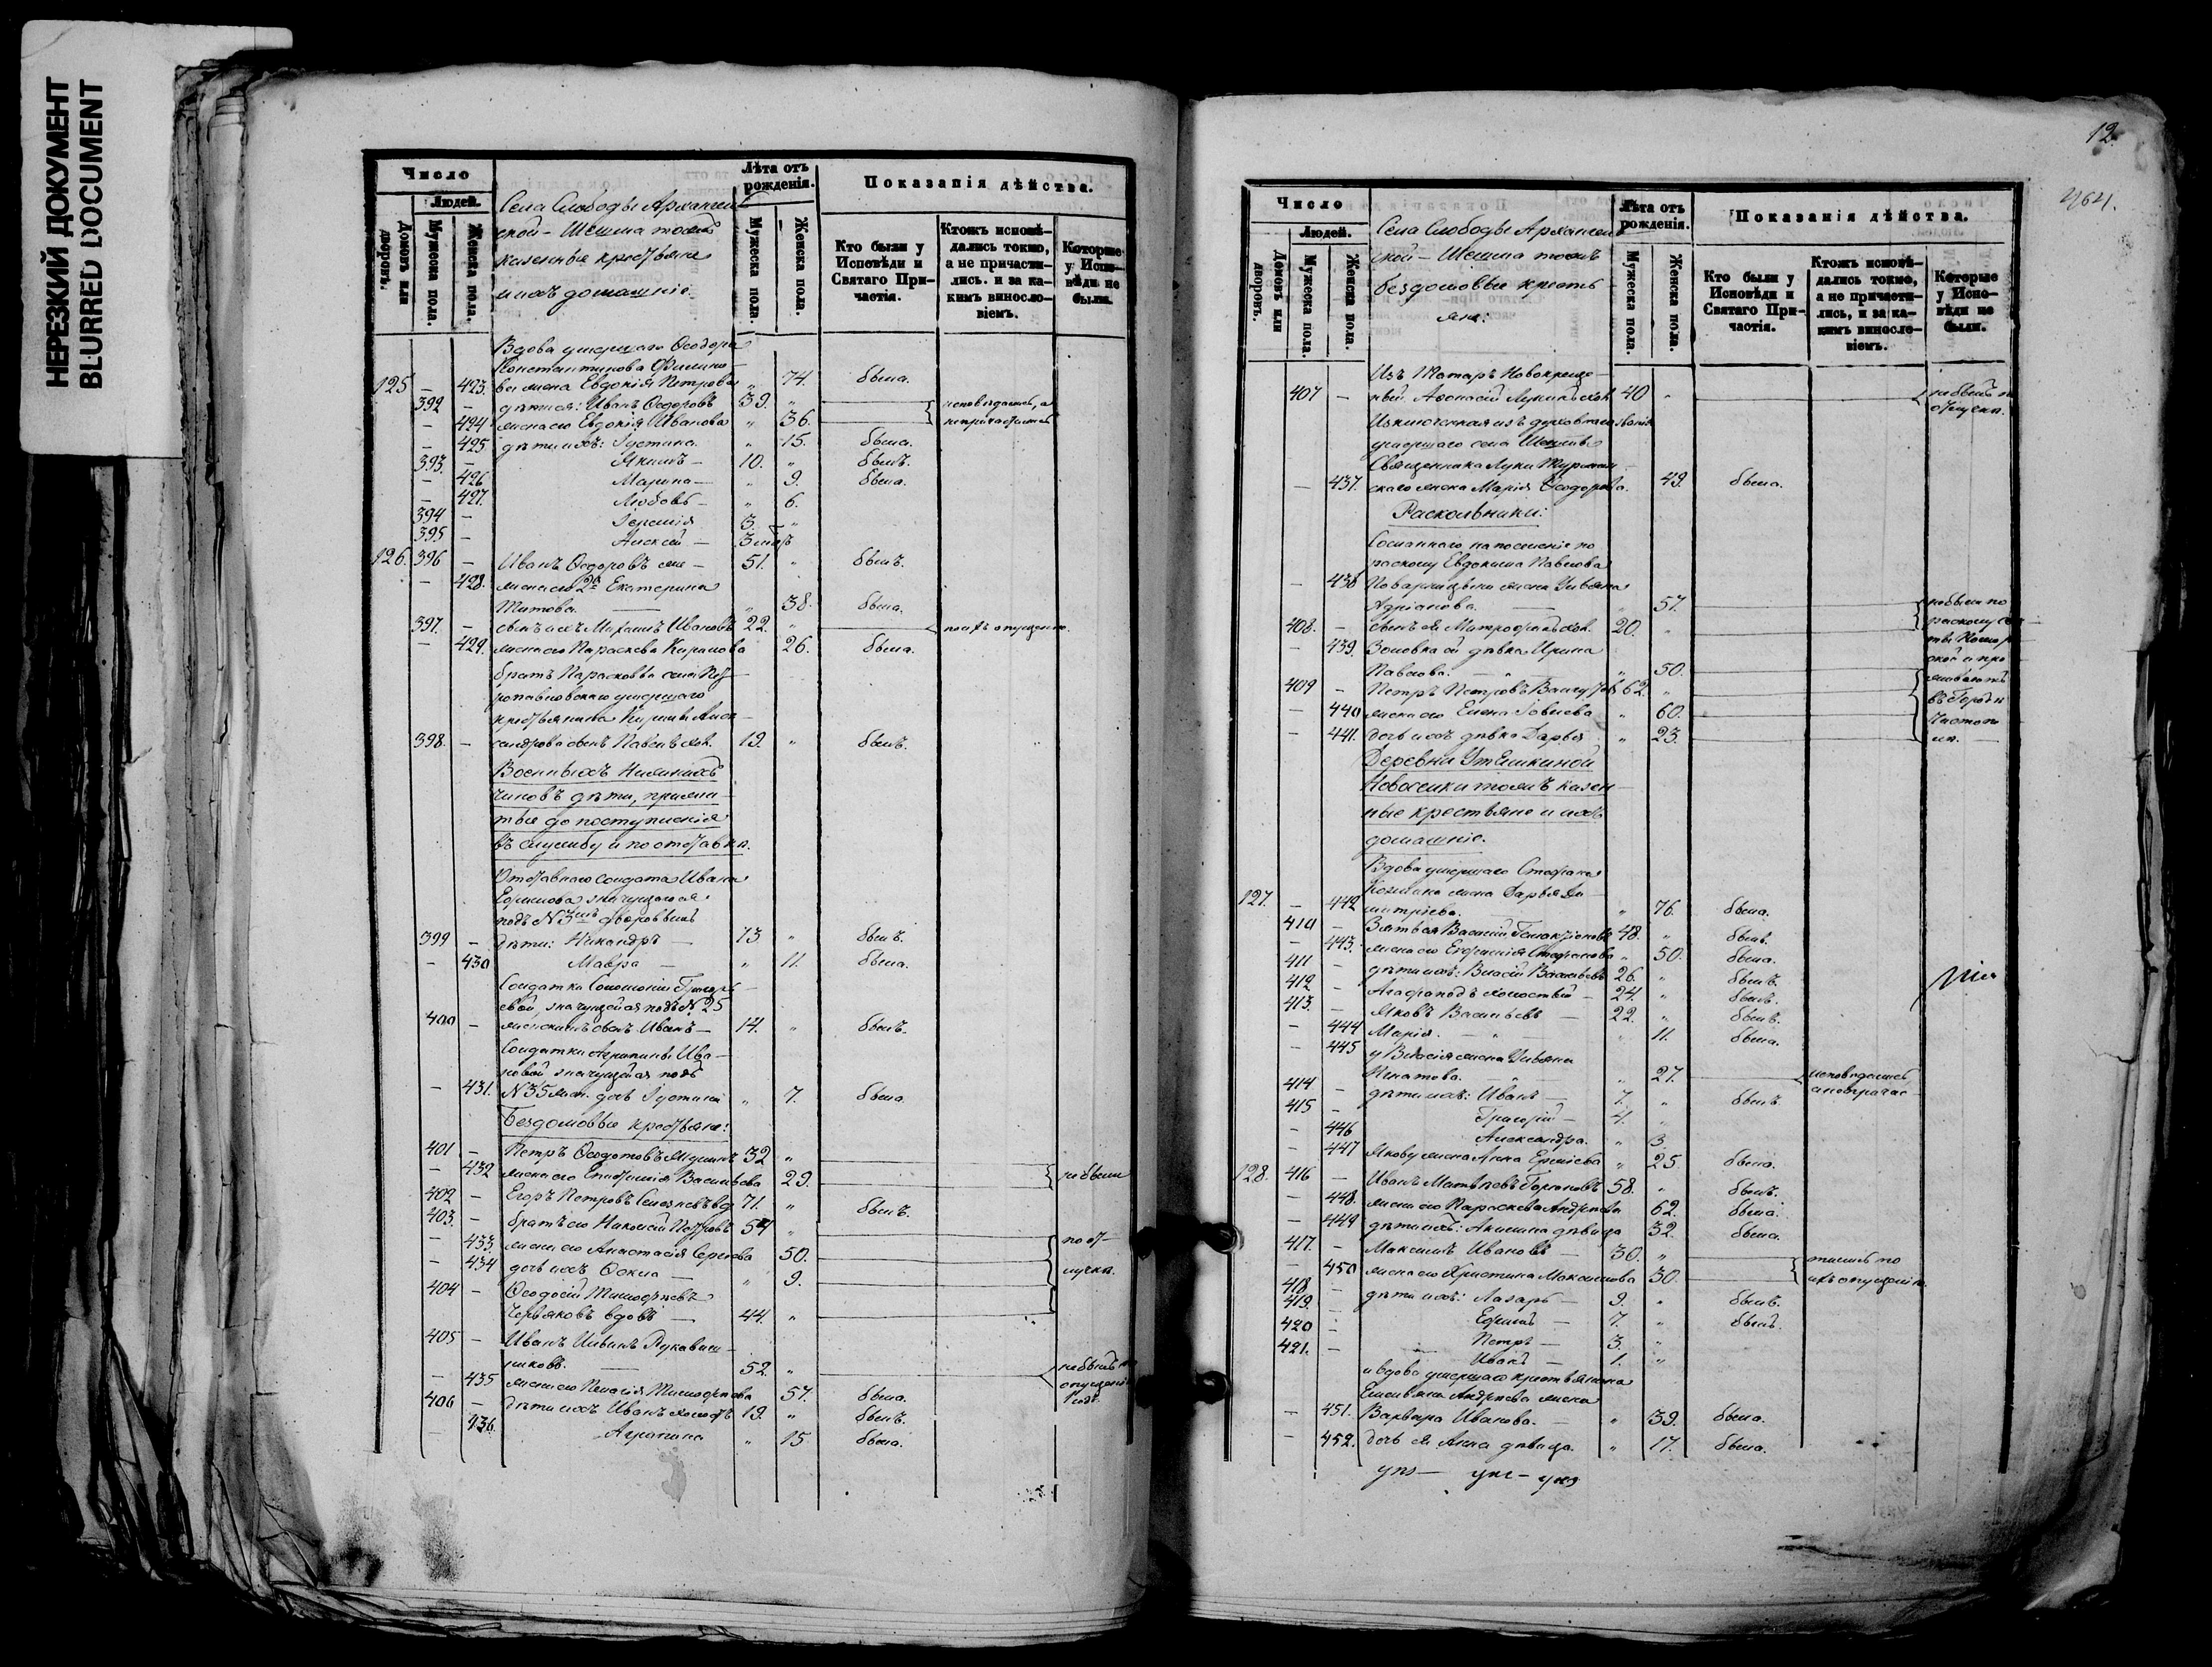 НЕРЕЗКИЙ ДОКУМЕНТ
BLURRED DOCUMENT
Число
Людей.
Домовъ или дворовъ.
Мужеска пола.
Женска пола.
Села Слободы Архангель
ской - Шешма тожъ
казенные крестьяне
и ихъ домашніе.
Лѣта отъ рожденія.
Мужеска пола.
Женска пола.
Показанія дѣйства.
Кто были у Исповѣди и Святаго Причастія.
Ктожъ исповѣдались токмо, а не причастились. и за какимъ винословіемъ.
Которые у Исповѣди не были.
Вдова умершаго Ѳеодора
Константинова Филимо
125 — 423. ва жена Евдокія Петрова „ 74. была.
392 — дѣти ея: Иванъ Ѳедоровъ 39. „ исповѣдались, а
— 424 жена его Евдокія Иванова „ 36. непричастились
— 425 дѣти ихъ: Устина. „ 15. была.
393. — Якимъ — 10. „ былъ.
— 426 Марина — „ 9. была.
— 427. Любовь — „ 6.
394 — Іеремія 3. „
395 — Алексій — 3 мѣс.
126. 396 — Иванъ Ѳедоровъ — 51. „ былъ.
— 428. жена его 2я Екатерина
Титова. — „ 38. была.
397. — сынъ ихъ Михаилъ Ивановъ 22. „ по ихъ опущенію.
— 429. жена его Параскева Кирилова 26. была.
братъ Парасковьи села Пет
ропавловскаго умершаго
крестьянина Кирилы Алек
398. — сандрова сынъ Павелъ хол. 19. „ былъ.
Военныхъ Нижнихъ
чиновъ дѣти, прижи
тые до поступленія
въ службу и по отставкѣ.
Отставнаго солдата Ивана
Ефимова значущагося
подъ №3мъ дворовымъ
399 — дѣти: Никандръ — 13 „ былъ.
— 430 Мавра — „ 11. была.
Солдатки Соломоніи Григорь
евой, значущейся подъ № 25
400 — сынъ Иванъ — 14. „ былъ.
Солдатки Агрипины Ива
новой значущейся подъ
— 431. №35 дочь Устинія „ 7. была.
Бездомовые крестьяне:
401 — Петръ Ѳедотовъ 32 „
— 432 жена его Епистимія Васильева 29. небыли
402 — Егоръ Петровъ вд 71. „ былъ.
403. — братъ его Николай Петровъ 54 „
— 433. жена его Анастасія Сергѣева 50. по от
— 434 дочь ихъ Ѳекла — „ 9. лучкѣ.
404 — Ѳеодосій Тимофѣевъ
Червяковъ вдовъ — 44. „
405 — Иванъ Ильинъ Рукавиш
никовъ. — 52. „ небылъ по
— 435 жена его Пелагія Тимофѣева 57. была. опущенію
406 — дѣти ихъ Иванъ холостъ 19. „ былъ.
— 436. Агрипина „ 15 была.
12.
Число
Людей.
Домовъ или дворовъ.
Мужеска пола.
Женска пола.
Села Слободы Архангель
ской - Шешма тожъ
бездомовые кресть
яне:
Лѣта отъ рожденія.
Мужеска пола.
Женска пола.
Показанія дѣйства.
Кто были у Исповѣди и Святаго Причастія.
Ктожъ исповѣдались токмо, а не причастились, и за какимъ винословіемъ.
Которые у Исповѣди не были.
Изъ Татаръ Новокреще
407 — ный Аѳонасій Лукинъ хол. 40 „ небылъ по отлучкѣ.
Изключенная изъ духовнаго званія
умершаго села Шешмы
Священника Луки
— 437. жена Марія Ѳеодорова. 49. была.
Раскольники:
Сосланнаго на поселеніе по
расколу Евдокима Павлова
— 438 жена Ульяна
Адріанова. — „ 57. небыли по
408. — сынъ ея Митрофанъ хол. 20. „ расколу
— 439. Золовка ей дѣвка Ирина
Павлова. — „ 50.
409 — Петръ Петровъ 62. „
— 440 жена его Елена Іовлева „ 60.
— 441. дочь ихъ дѣвка Дарья „ 23.
Деревни Утяшкиной
Новоселки тожъ казен
ные крестьяне и ихъ
домашніе.
Вдова умершаго Стефана
127. — 442 жена Дарья Ди
митріева. „ 76. была.
410 — Зять ея Василій 48. „ былъ.
— 443. жена его Евфимія Стефанова „ 50. была.
411 — дѣти ихъ: Власій Васильевъ 26. „ былъ.
412 — Агафоподъ холостый — 24. „ былъ.
413. — Яковъ Васильевъ — 22. „ былъ.
— 444 Марія. — „ „ 11. была.
— 445 у Власія жена Ульяна
Игнатова. — „ „ 27. исповѣдались,
414 — дѣти ихъ: Иванъ — 7. „ былъ.
415 — Григорій — 4. „
— 446 Александра. „ 3
— 447 Якову жена Анна Еремѣева „ 25. была.
128. 416 — Иванъ Матвѣевъ 58. „ былъ.
— 448. жена его Параскева Андреева 62. была.
— 449 дѣти ихъ: Акилина дѣвица 32. была.
417. — Максимъ Ивановъ — 30. „
— 450 жена его Христина Максимова 30. ихъ опущенію.
418 — дѣти ихъ: Лазарь — 9. „ былъ.
419. — Ефимъ — 7. „ былъ.
420 — Петръ — 3. „
421. — Иванъ — 1. „
и вдова умершаго крестьянина
Емельяна Андреева жена
— 451. Варвара Иванова. — „ 39. была.
— 452. дочь ея Анна дѣвица. „ 17. была.